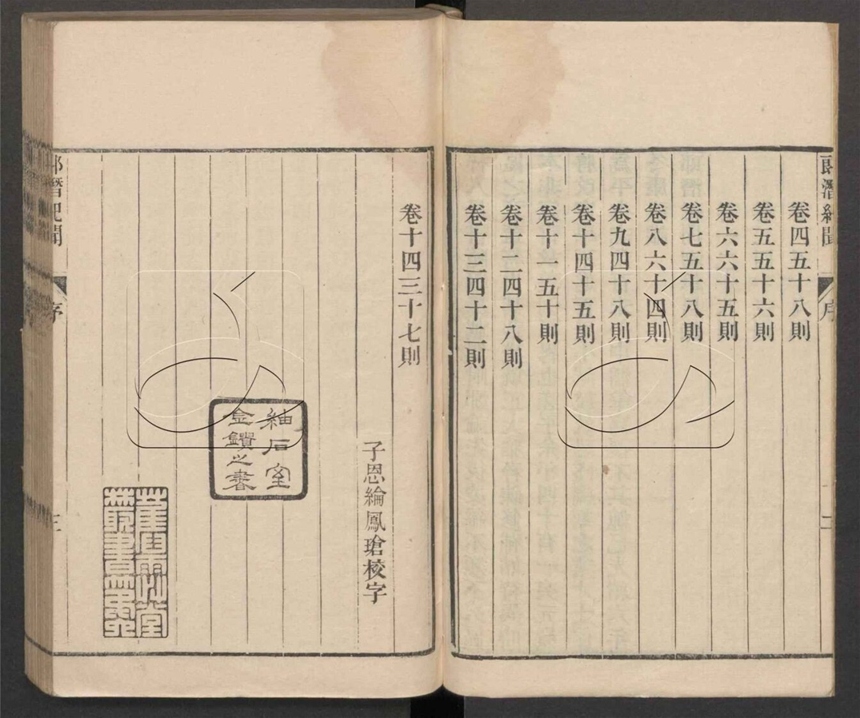 郎潛紀聞
序
二
卷四五十八則
卷五五十六則
卷六六十五則
卷七五十八則
卷八六十四則
卷九四十八則
卷十四十五則
卷十一五十則
卷十二四十八則
卷十三四十二則
卷十四三十七則
子恩綸鳳瑲校字
紬石室
金鐀之書
郎潛紀聞
序
三